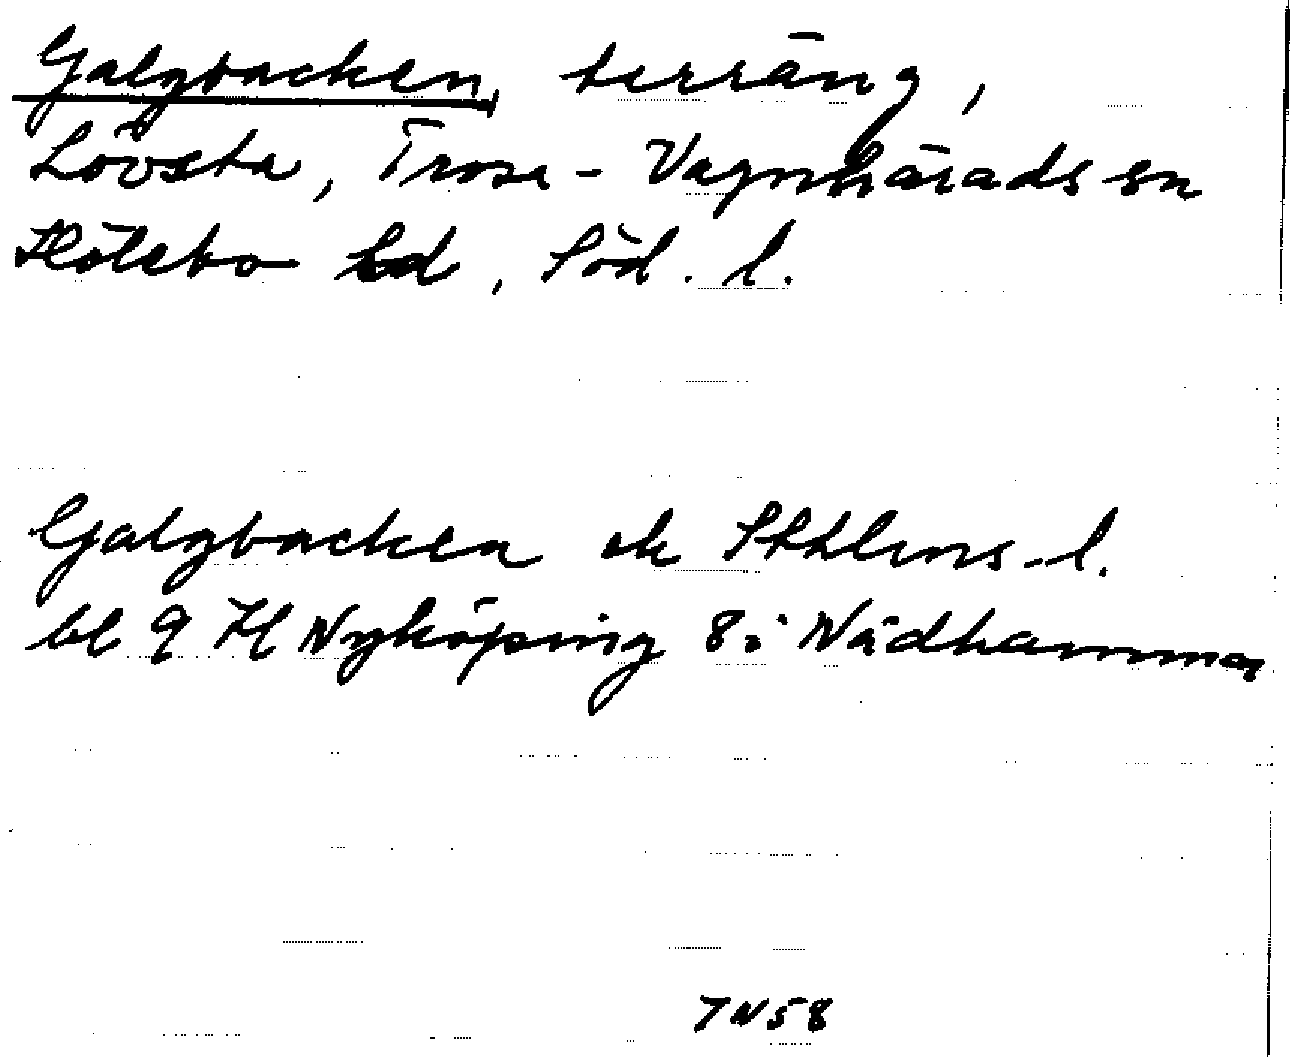 Galgbacken, terräng,
Lövsta, Trosa-Vagnhärads sn
Hölebo hd, Söd. l.
Galgbacken ek Sthlms-l.
bl 9 H Nyköping 8 i Nådhammar
7 N 58